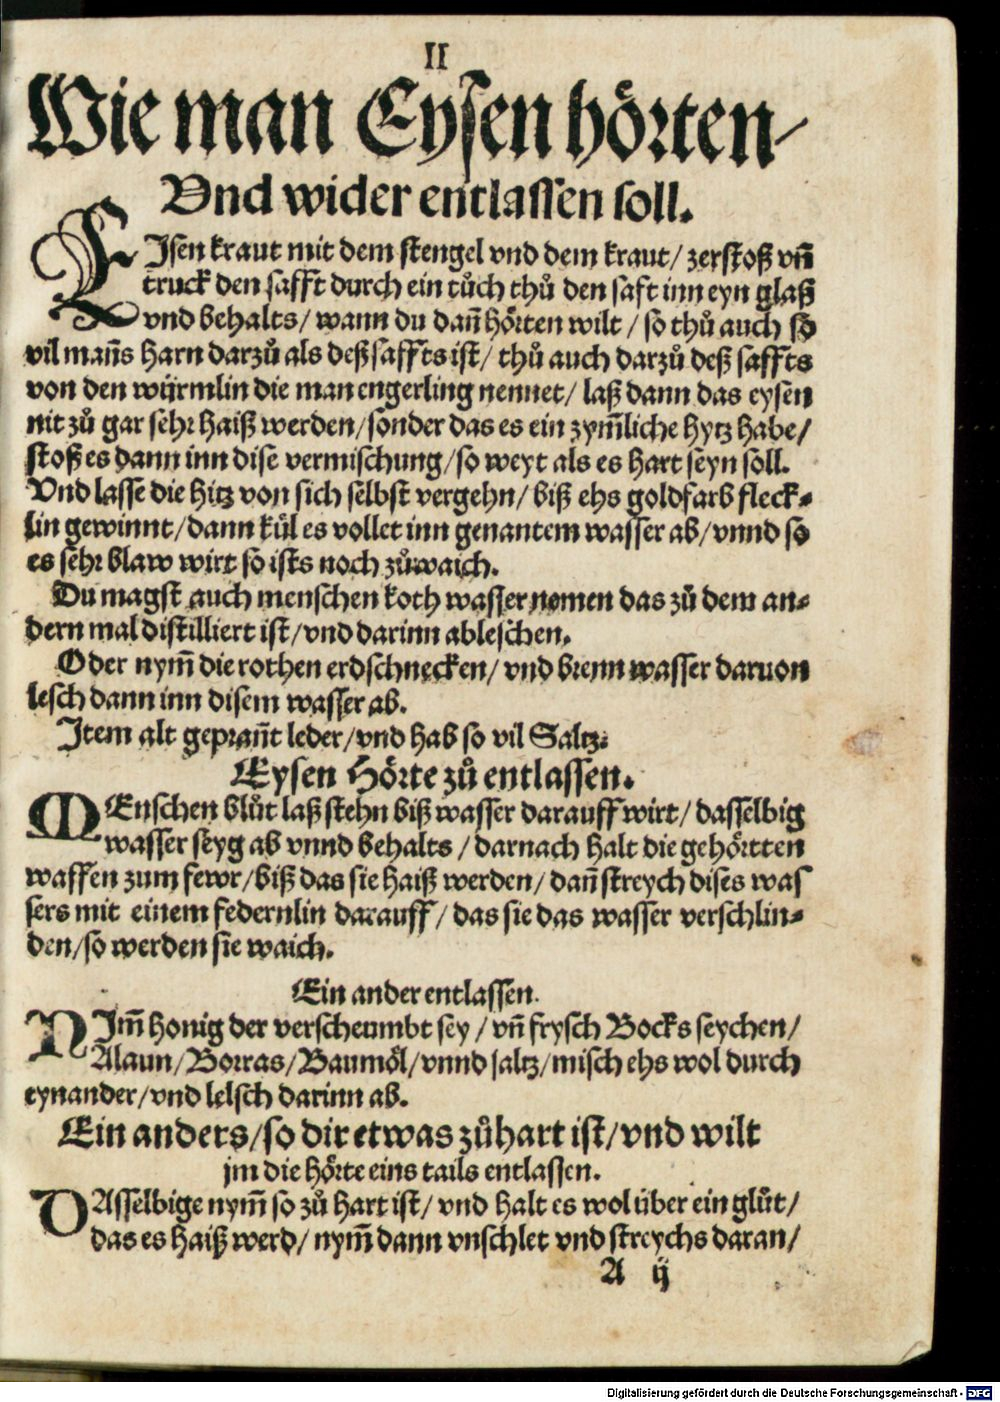 II
Wie man Eysen hörten/
Vnd wider entlassen soll.
EIsen kraut mit dem stengel vnd dem kraut/ zerstoß vn̄
truck den safft durch ein tůch thů den saft inn eyn glaß
vnd behalts/ wann du dañ hörten wilt / so thů auch so
vil mañs harn darzů als deß saffts ist/ thů auch darzů deß saffts
von den würmlin die man engerling nennet/ laß dann das eysen
nit zů gar sehr haiß werden/sonder das es ein zym̄liche hytz habe/
stoß es dann inn dise vermischung/so weyt als es hart seyn soll.
Vnd lasse die hitz von sich selbst vergehn/ biß ehs goldfarb fleck-
lin gewinnt/dann kül es vollet inn genantem wasser ab/vnnd so
es sehr blaw wirt so ists noch zůwaich.
Du magst auch menschen koth wasser nemen das zů dem an-
dern mal distilliert ist/vnd darinn ableschen.
Oder nym̄ die rothen erdschnecken/ vnd brenn wasser daruon
lesch dann inn disem wasser ab.
Item alt geprañt leder/vnd hab so vil Saltz.
Eysen Hörte zů entlassen.
MEnschen blůt laß stehn biß wasser darauff wirt/ dasselbig
wasser seyg ab vnnd behalts / darnach halt die gehörtten
waffen zum fewr/biß das sie haiß werden/ dañ streych dises was
sers mit einem federnlin darauff/ das sie das wasser verschlin-
den/so werden sie waich.
Ein ander entlassen.
NIm̄ honig der verscheumbt sey / vn̄ frysch Bocks seychen/
Alaun/Borras/Baumöl/vnnd saltz/misch ehs wol durch
eynander/vnd lelsch darinn ab.
Ein anders/so dir etwas zůhart ist/vnd wilt
jm die hörte eins tails entlassen.
DAsselbige nym̄ so zů hart ist/ vnd halt es wol über ein glůt/
das es haiß werd/ nym̄ dann vnschlet vnd streychs daran/
A ij
Digitalisierung gefördert durch die Deutsche Forschungsgemeinschaft - DFG